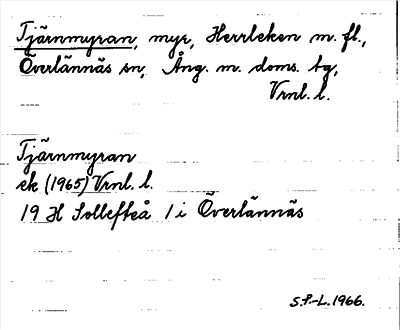 Tjärnmyran, myr, Herrleken m. fl.,
Överlännäs sn, Ång. m. doms. tg,
Vrnl. l.
Tjärnmyran
ek (1965) Vrnl. l.
19 H Sollefteå 1 i Överlännäs
S.P.-L. 1966.